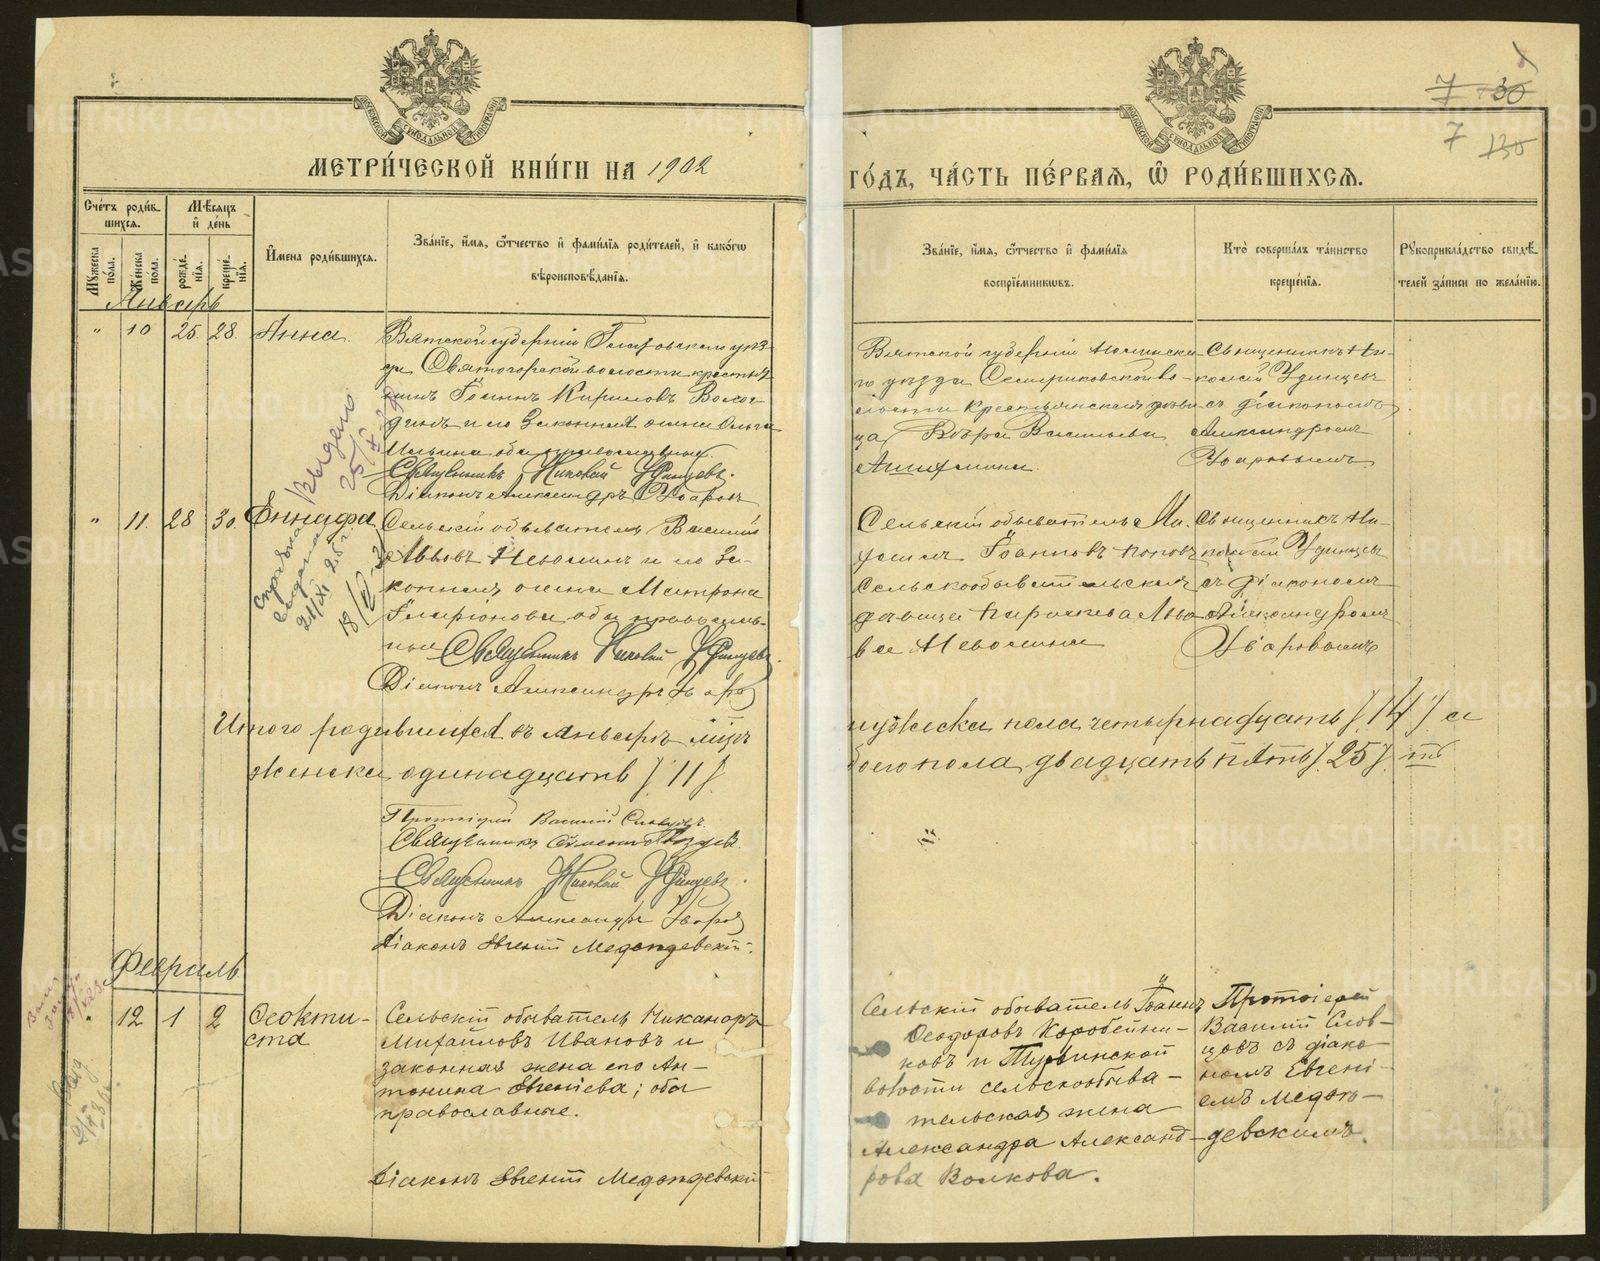 МЕТРИ́ЧЕСКОЙ КНИ́ГИ НА 1902
ГО́ДЪ, ЧА́СТЬ ПЕ́РВАЯ, Ѡ РОДИ́ВШИХСЯ.
7 130
7 130
Сче́тъ роди́в-
шихся.
Мѣ́сяцъ
и де́нь
Мꙋ́жеска по́ла.
Же́нска по́ла.
рожде́нїя.
креще́нїя.
И҆́мена роди́вшихся.
Зва́нїе, и҆́мя, ѻ҆́тчество и҆ фами́лїя роди́телей, и҆ како́гѡ
вѣроисповѣ́данїя.
Зва́нїе, и҆́мя, ѻ҆́тчество и҆ фами́лїя
воспрїе́мникѡвъ.
Кто̀ соверша́лъ та́инство
креще́нїя.
Рꙋкоприкла́дство свидѣ́-
телей за́писи по жела́нїю.
Январь
" 10 25. 28. Анна.
Вятской губерніи Глазовскаго уѣз-
да Святогорской волости крестья-
нинъ Іоаннъ Кириловъ Волог-
динъ и его законная жена Ольга
Ильина оба православные.
Священникъ Николай Удинцевъ.
Діаконъ Александръ Уваровъ
Вятской губерніи
го уѣзда во-
лости крестьянская дѣви-
ца Вѣра Васильева
Священникъ Ни-
колай Удинцевъ
съ діакономъ
Александромъ
Уваровымъ.
Выдано
25/X
" 11. 28 30. Еннафа
Сельскій обыватель Василій
Львовъ Неволинъ и его за-
конная жена Матрона
Иларіонова оба православ-
ные Священникъ Николай Удинцевъ.
Діаконъ Александръ Уваровъ
Сельскій обыватель
Іоанновъ Поповъ
сельскообывательская
дѣвица Льво-
ва Неволина
Священникъ Ни-
колай Удинцевъ
съ діакономъ
Александромъ
Уваровымъ
справка
выдана
21/XI 25 г.
Итого родившихся въ январѣ мцѣ мужеска пола четырнадцать /14/ а
женска одинадцать /11/. обоего пола двадцать пять /25/.
Протоіерей Василій Словцовъ.
Священникъ
Священникъ Николай Удинцевъ.
Діаконъ Александръ Уваровъ
Діаконъ Евгеній Медвѣдевскій.
Февраль
12 1 2 Ѳеокти-
ста
Сельскій обыватель Никаноръ
Михайловъ Ивановъ и
законная жена его Ан-
тонина Евгеніева; оба
православные.
Діаконъ Евгеній Медвѣдевскій
Сельскій обыватель Іоаннъ
Ѳеодоровъ Коробейни-
ковъ и Туринской
волости сельскообыва-
тельская жена
Александра Александ-
рова Волкова.
Протоіерей
Василій Слов-
цовъ съ діако-
номъ Евгені-
емъ Медвѣ-
девскимъ.
METRIKI.GASO-URAL.RU